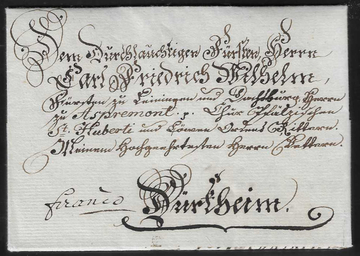 Dem Durchlauchtigen Fürsten, Herrn
Carl Friedrich Wilhelm,
Fürsten zu Leiningen und Dachsburg, Herrn
zu Aspremont p. Chur Pfälzischen
St. Huberti und Löwen Ordens Rittern.
Meinem Hochgeehrtesten Herrn Vettern.
franco
Dürkheim.